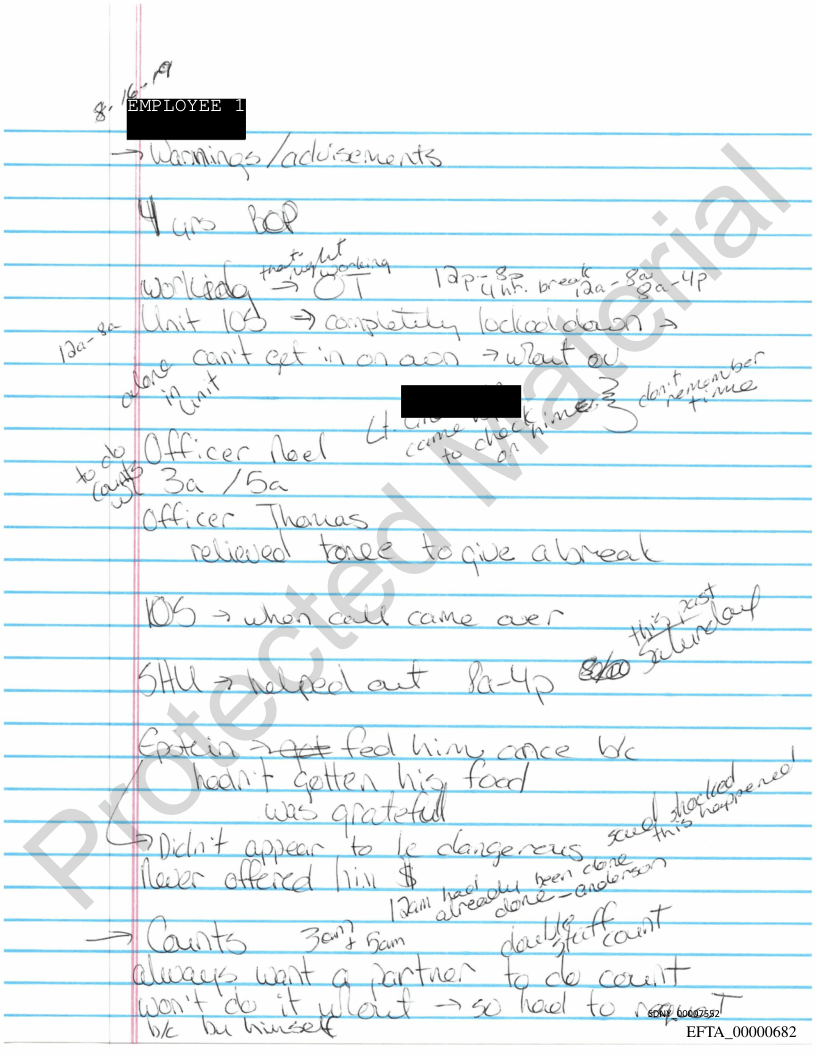 8-16-19
EMPLOYEE 1
→ Warnings/advisements
4 yrs BOP
working → OT
that night working
12p-8p
4 hr. break
12a-8a
8a-4p
12a-8a
Unit 10S → completely locked down →
can't get in on own → w/out ou
alone in unit
Lt.
came
to check
on him
don't remember
time
Officer Noel
to do
counts
w/
3a / 5a
Officer Thomas
relieved to give a break
10S → when call came over
this past
Saturday
SHU → helped out 8a-4p
Epstein → fed him once b/c
hadn't gotten his food
was grateful
→ Didn't appear to be dangerous
said shocked
this happened
Never offered him $
12am had
already been done
done - anderson
→ Counts 3am? + 5am
double
staff
count
always want a partner to do count
won't do it w/out → so had to request
b/c by himself
SDNY_00007552
EFTA_00000682
Protected Material